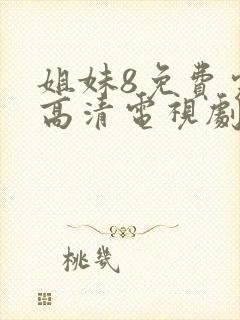 姐妹8免費
高清電視劇
桃幾